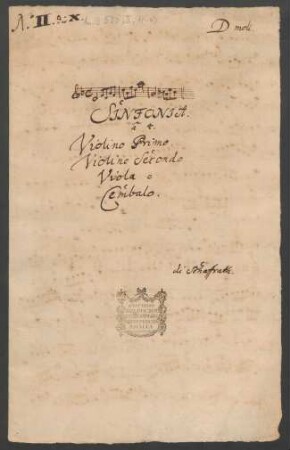 N. II.
D moll.
SINFONIA.
à 4.
Violino Primo
Violino Secondo
Viola e
Cembalo.
di